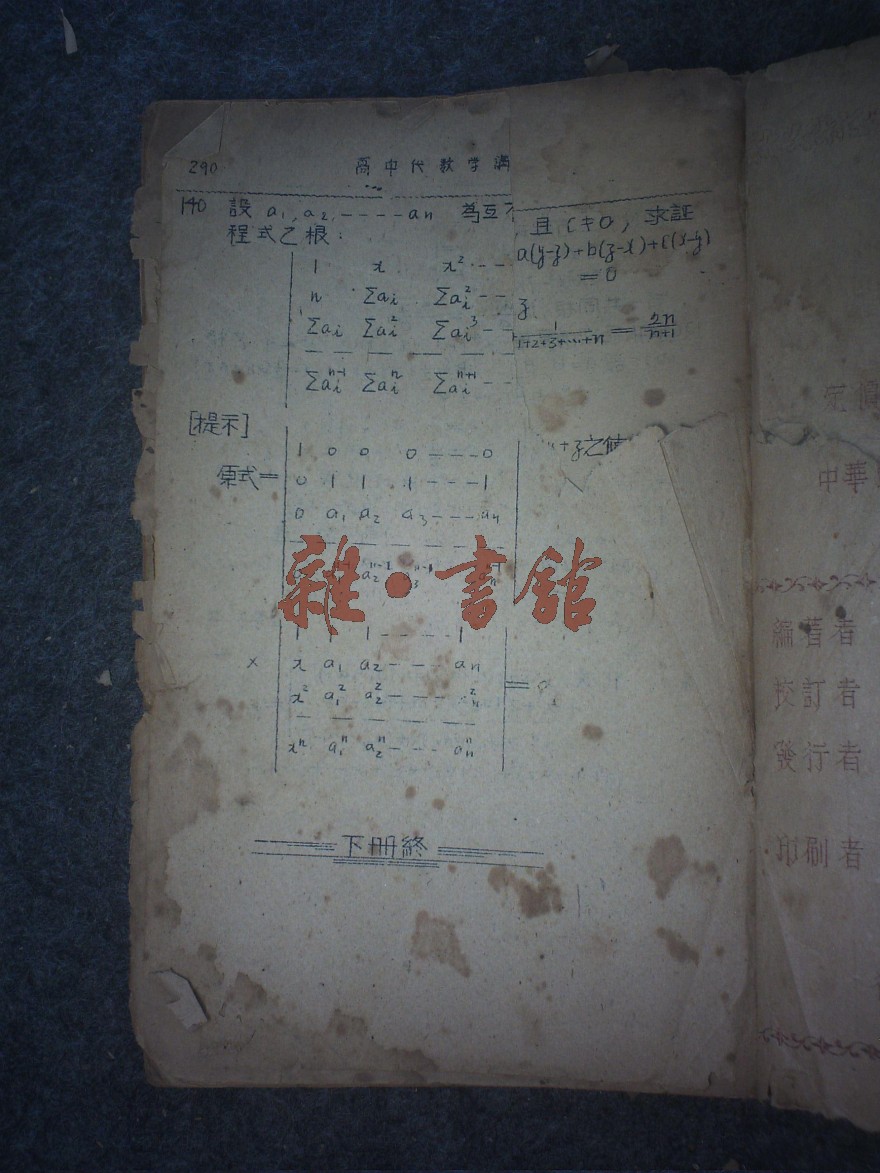 290
高中代数学
140 設 a₁, a₂, ---- aₙ 為互
程式之根:
1 x x² --
n Σaᵢ Σaᵢ² --
Σaᵢ Σaᵢ² Σaᵢ³ --
Σaᵢⁿ⁻¹ Σaᵢⁿ Σaᵢⁿ⁺¹ --
[提示]
原式=
1 0 0 0 --- 0
0 1 1 1 --- 1
0 a₁ a₂ a₃ --- aₙ
a₂ⁿ⁻¹
雜·書館
1 1 1 ---- 1
× x a₁ a₂ --- aₙ
x² a₁² a₂² ---- aₙ²
xⁿ a₁ⁿ a₂ⁿ --- aₙⁿ
=
下册終
且 c≠0, 求証
a(y-z)+b(z-x)+c(x-y)
=0
z
+ 1/(1+2+3+···+n) = 2n/(n+1)
+z之値
中華
編著者
校訂者
發行者
印刷者